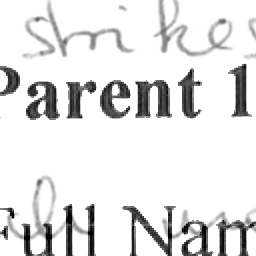 strikes
Parent 1
Full Nam